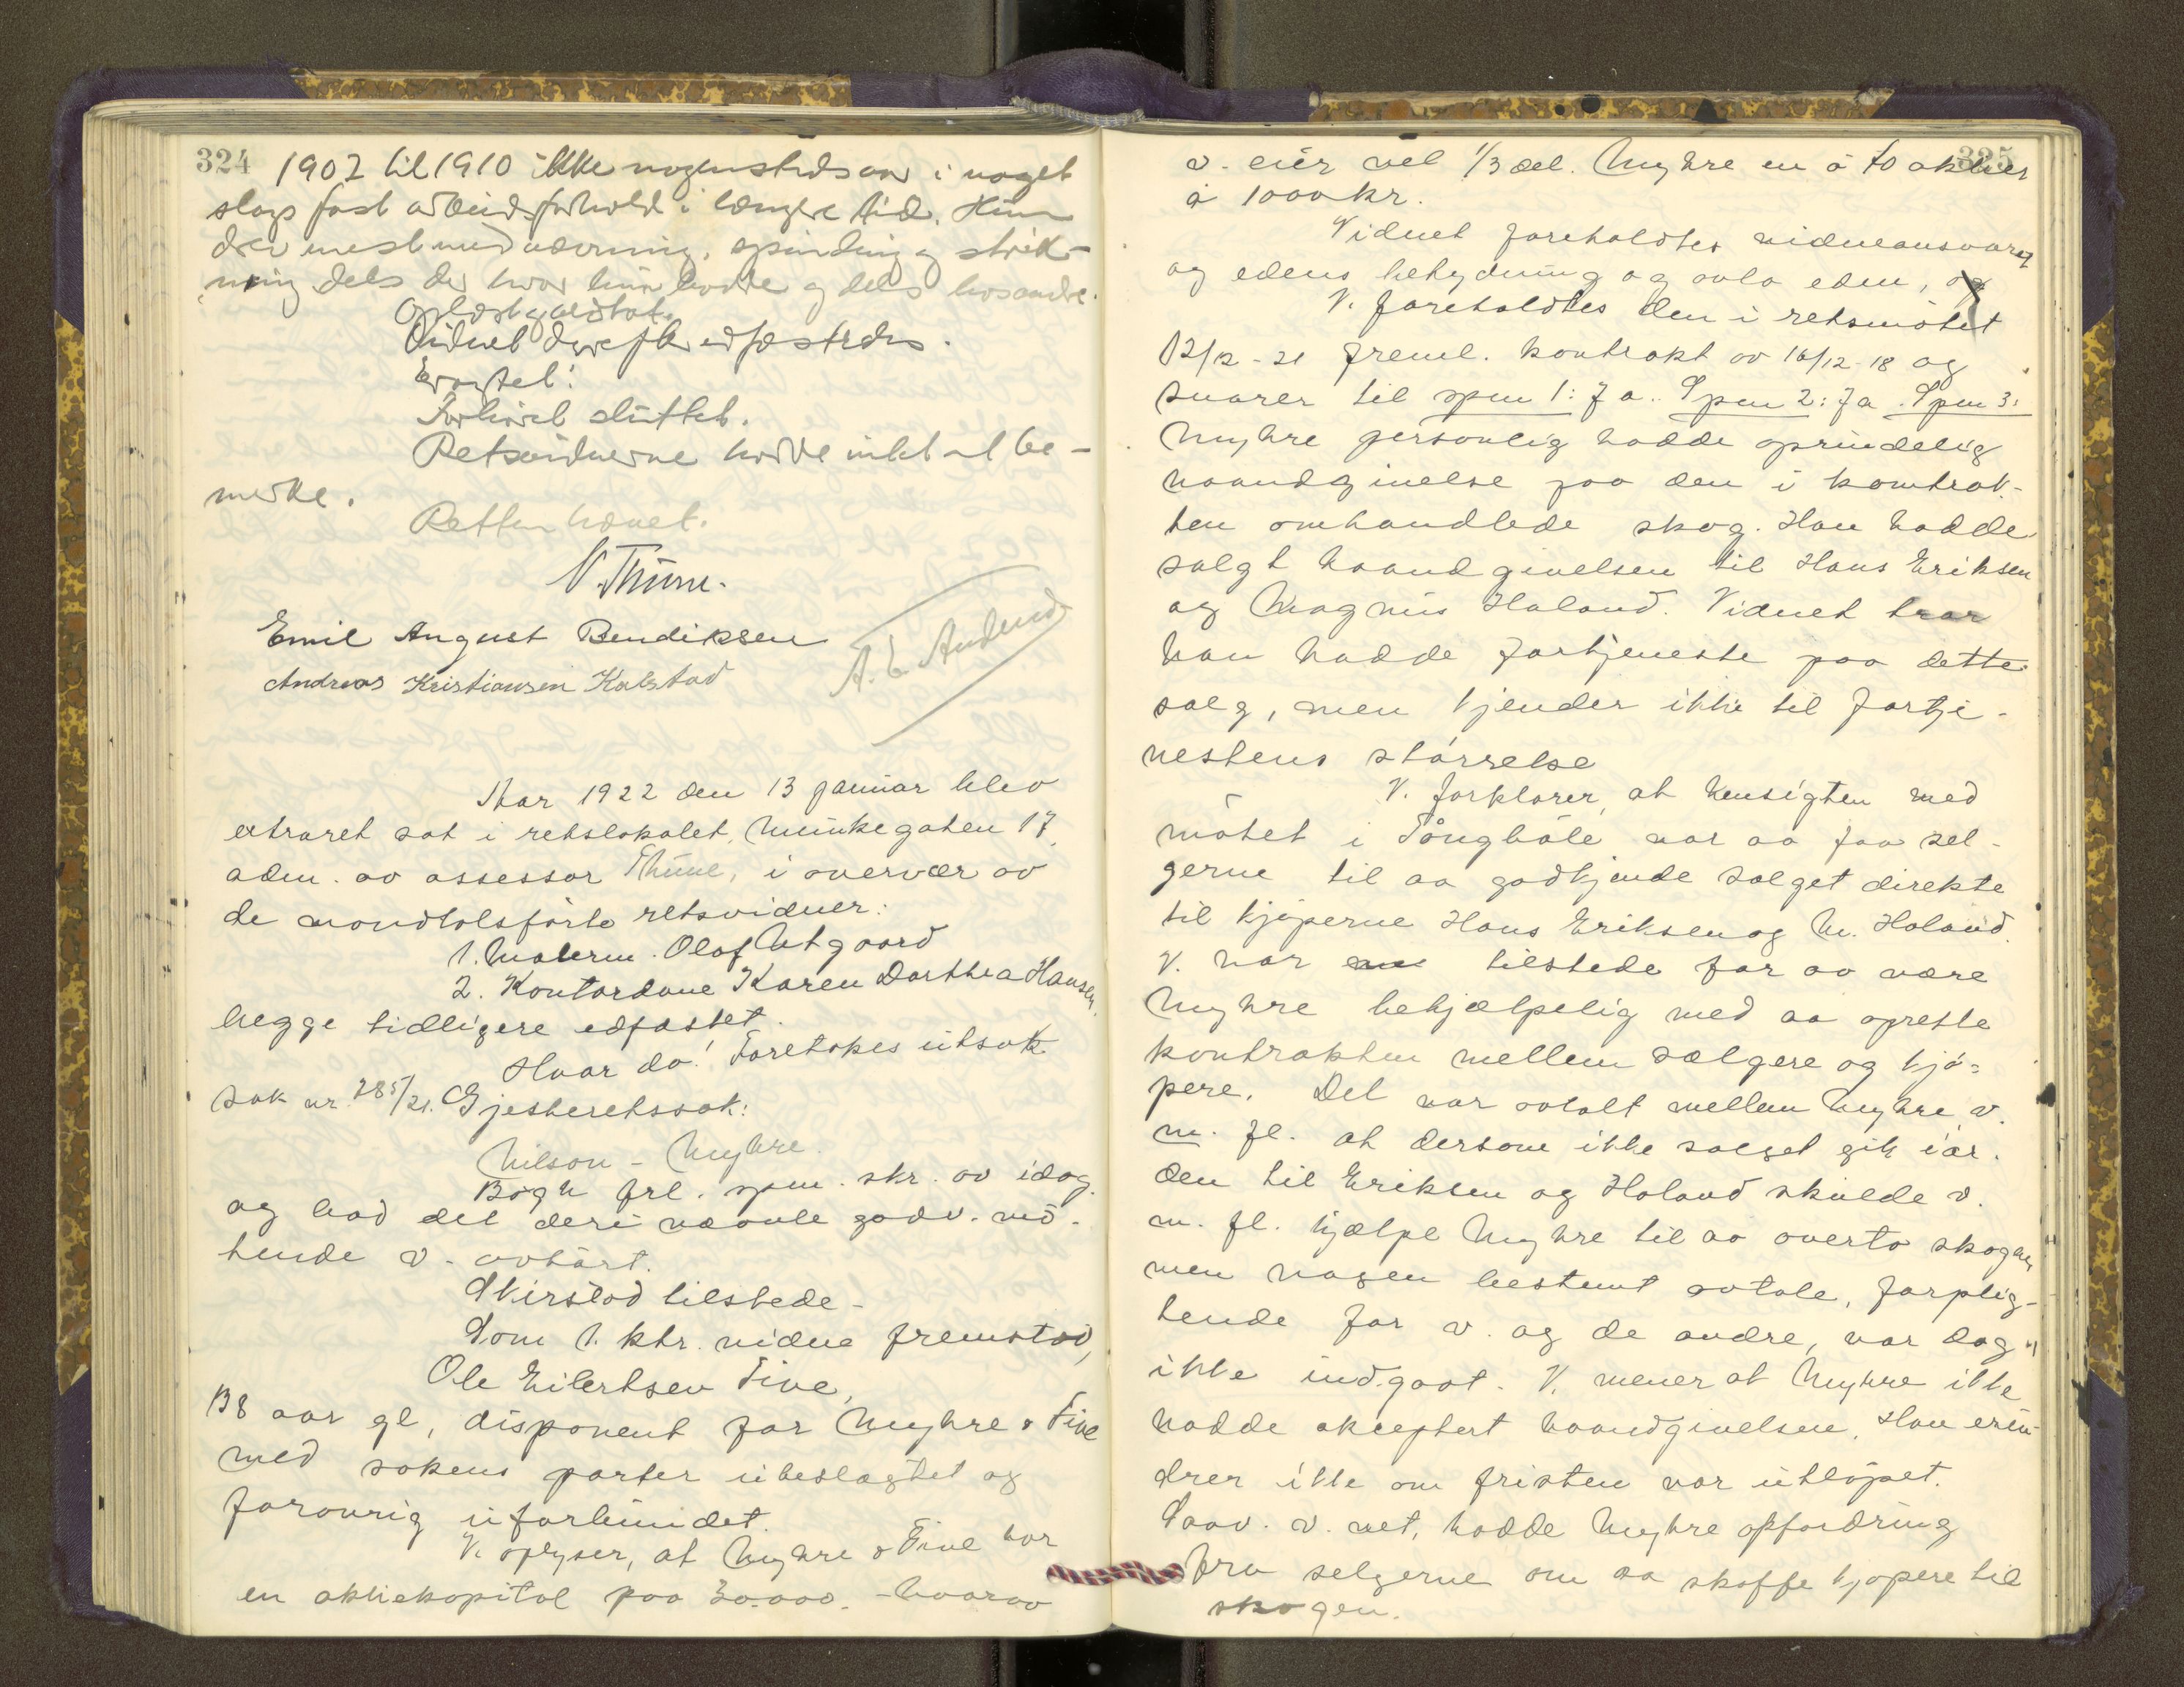 324
1902 til 1910 ikke nogensteds var i noget
slags fast arbeidsforhold i længere tid. Hun
drev mest med vævning, spinding og strik-
ning dels der hvor hun bodde og dels hos andre.
Oplæst vedtat.
Vidnet derefter edfæstedes.
Fratraadt.
Forhøret sluttet.
Retsvidnerne hadde intet at be-
merke.
Retten hævet.
V. Thune.
Emil August Bendiksen
Andreas Kristiansen Kalstad
Aar 1922 den 13 januar blev
extraret sat i retslokalet, Munkegaten 17,
adm. av assessor Thune, i overvær av
de mandtalsførte retsvidner:
1. Malerm. Olaf Utgaard
2. Kontordame Karen Dorthea Hansen,
begge tidligere edfæstet.
Hvor da! Foretokes utsat
sak nr. 285/21. Gjesteretssak:
Nilson - Myhre.
Bøgh frl. spm. skr. av idag
og bad det deri nævnte godv. mø-
tende v. avhørt.
Skirstad tilstede -
Som 1. ktr. vidne fremstod,
Ole Eilertsen Five,
38 aar gl, disponent for Myhre & Five
med sakens parter ubeslægtet og
forøvrig uforbundet.
V. oplyser, at Myhre & Five har
en aktiekapital paa 30.000.- hvorav
325
v. eier vel 1/3 del. Myhre en à to aktier
à 1000 kr.
Vidnet foreholdtes vidneansvaret
og edens betydning og avla eden, og
V. foreholdtes den i retsmøtet
12/12-21 freml. kontrakt av 16/12-18 og
svarer til spm 1: Ja.. Spm 2: Ja. Spm 3:
Myhre personlig hadde oprindelig
haandgivelse paa den i kontrak-
ten omhandlede skog. Han hadde
solgt haandgivelsen til Hans Eriksen
og Magnus Haland. Vidnet tror
han hadde fortjeneste paa dette
salg, men kjender ikke til fortje-
nestens størrelse
V. forklarer, at hensigten med
møtet i Søngbøle var aa faa sel-
gerne til aa godkjende salget direkte
til kjøperne Hans Eriksen og M. Haland.
V. var tilstede for aa være
Myhre behjælpelig med aa opsette
kontrakten mellem sælgere og kjø-
pere. Det var avtalt mellem Myhre, v.
m. fl. at dersom ikke salget gik i or-
den til Eriksen og Haland skulde v.
m. fl. hjælpe Myhre til aa overta skogen,
men nogen bestemt avtale, forplig-
tende for v. og de andre, var dog
ikke indgaat. V. mener at Myhre ikke
hadde akceptert haandgivelsen. Han erin-
drer ikke om fristen var utløpet.
Saav. v. vet, hadde Myhre opfordring
fra selgerne om aa skaffe kjøpere til
skogen.